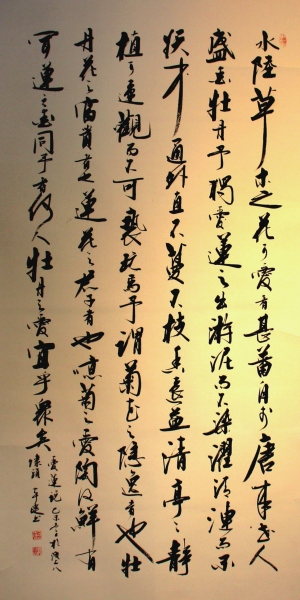 水陸草木之花可愛者甚蕃自李唐來世人
盛愛牡丹予獨愛蓮之出淤泥而不染濯清漣而不
妖中通外直不蔓不枝香遠益清亭々靜
植可遠觀而不可褻玩焉予謂菊花之隱逸者也牡
丹花之富貴者也蓮花之君子者也噫菊之愛陶後鮮有
聞蓮之愛同予者何人牡丹之愛宜乎眾矣
愛蓮說